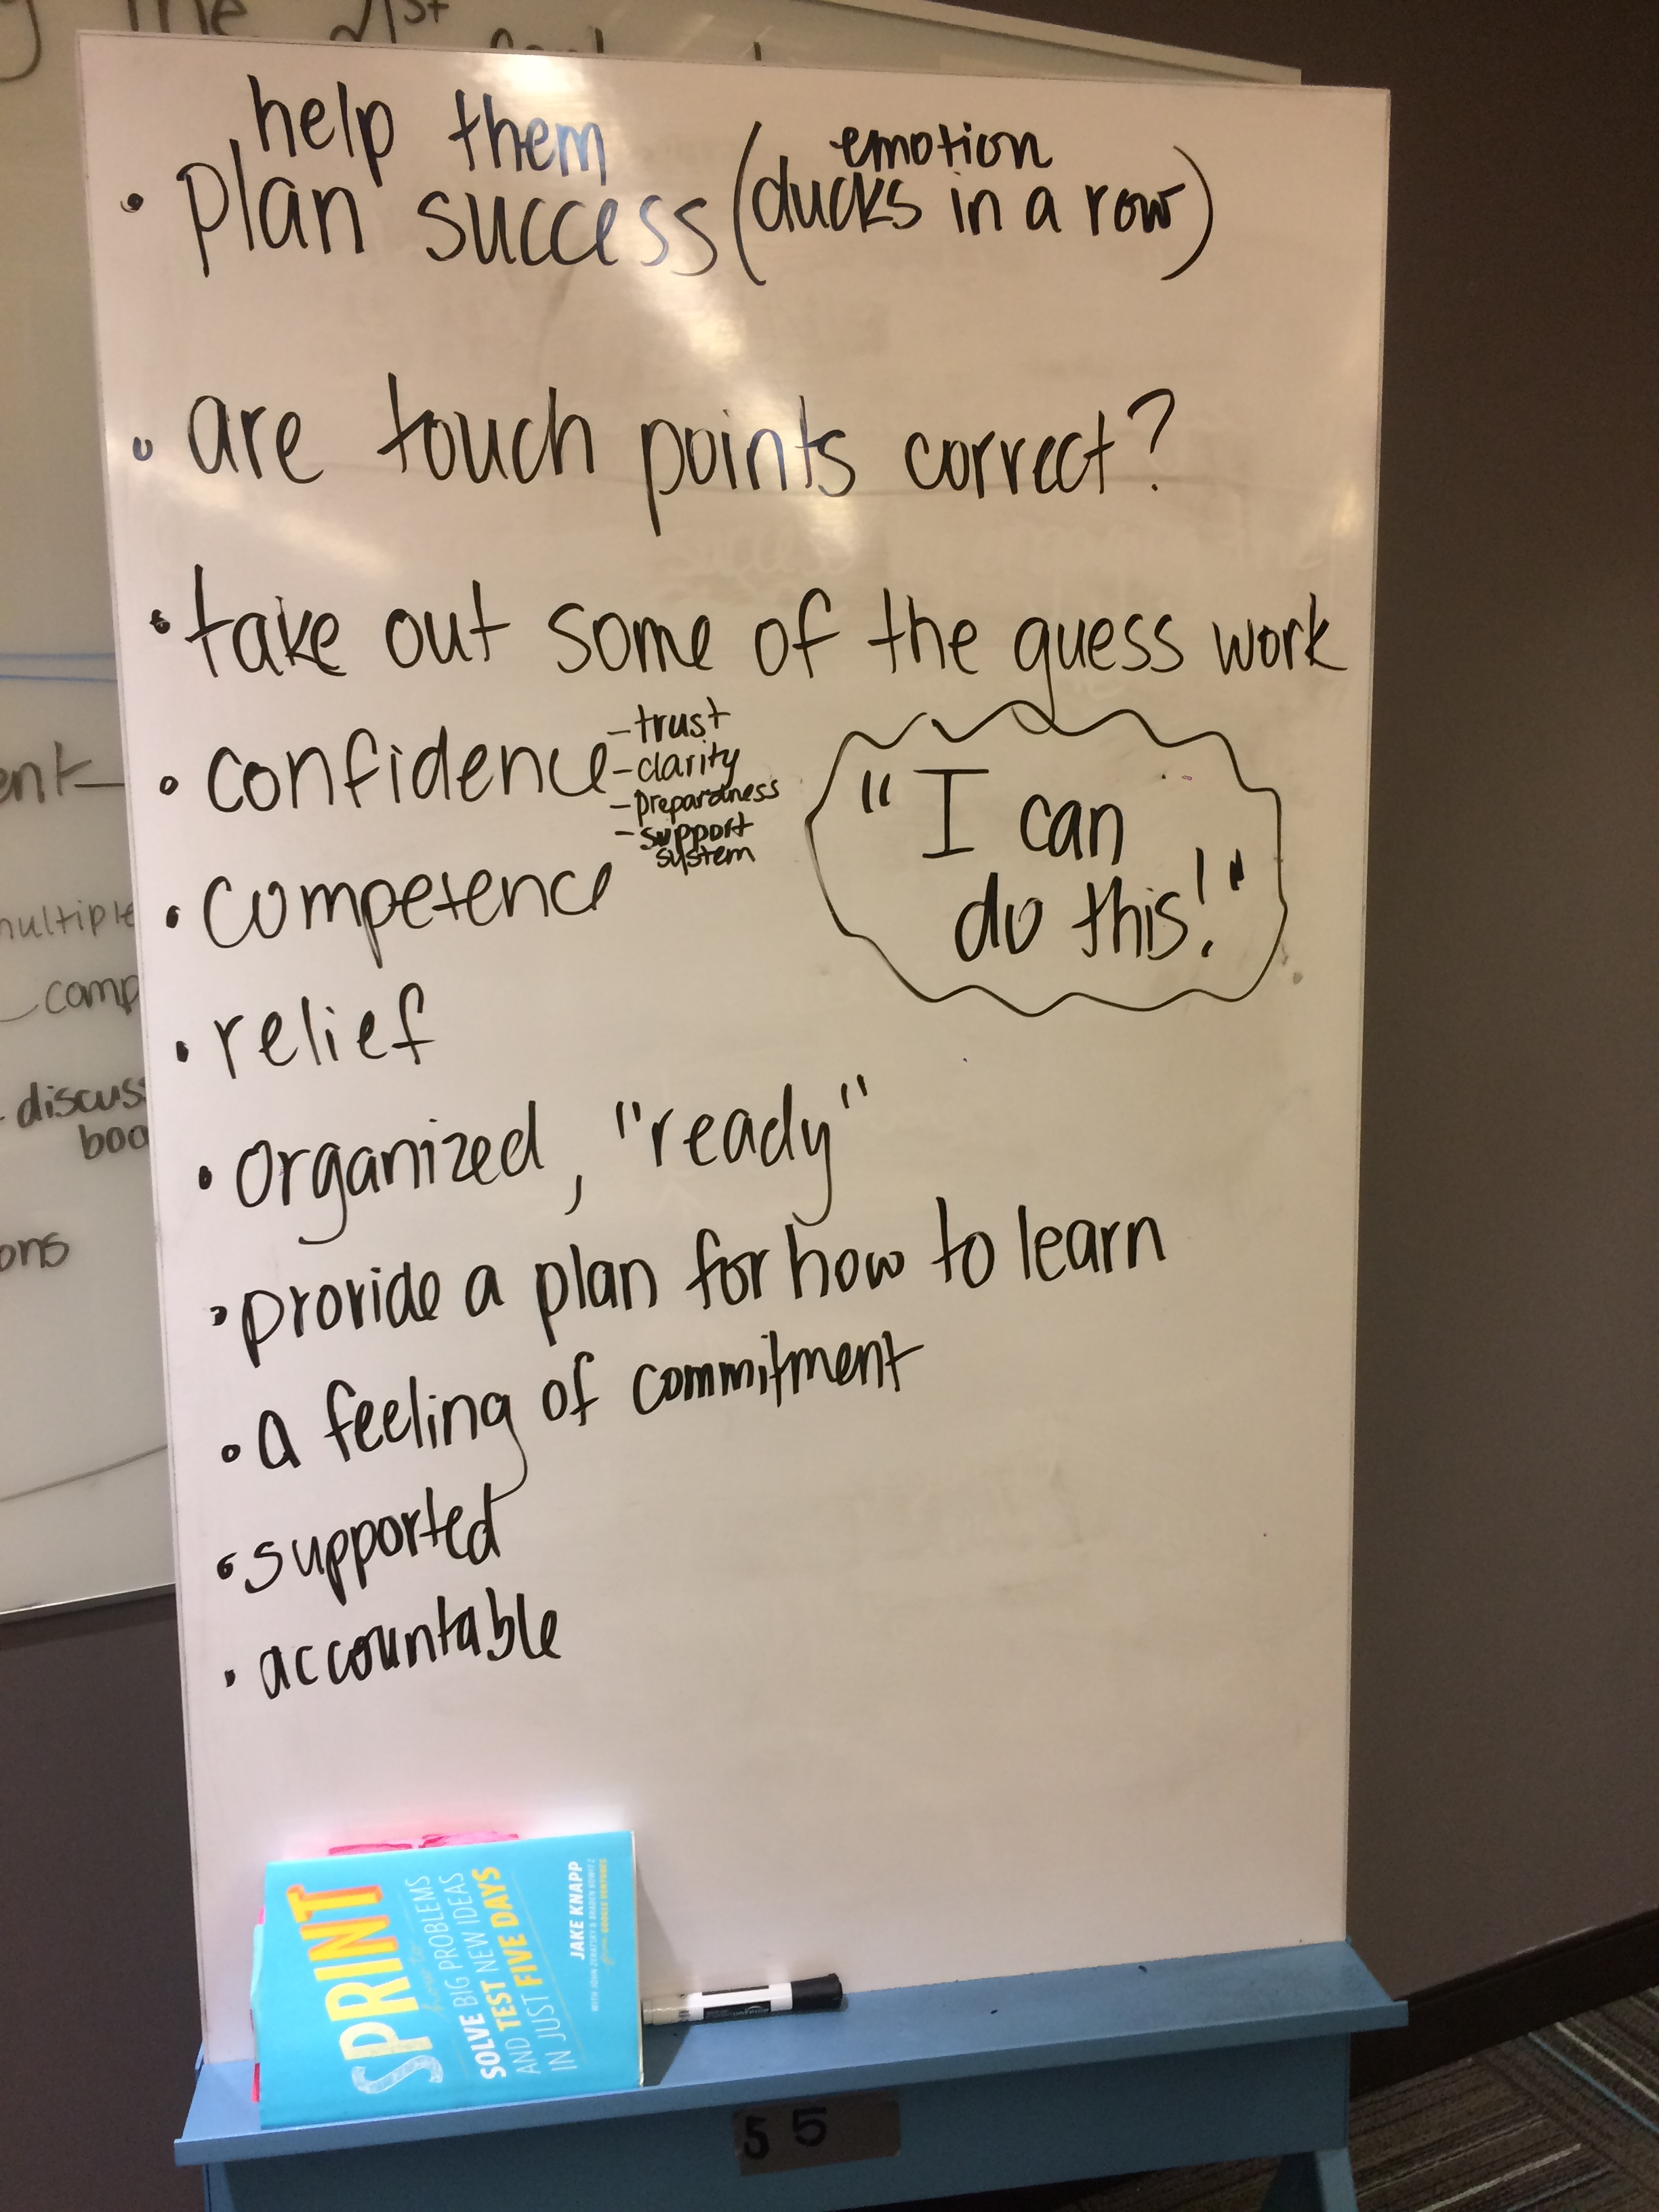 the 21st
help them
emotion
• plan success (ducks in a row)
• are touch points correct?
• take out some of the guess work
• confidence
- trust
- clarity
- preparedness
- support
system
"I can
do this!"
• competence
• relief
• organized, "ready"
• provide a plan for how to learn
• a feeling of commitment
• supported
• accountable
ent
multiple
comp
- discuss
boa
ons
SPRINT
how to
SOLVE BIG PROBLEMS
AND TEST NEW IDEAS
IN JUST FIVE DAYS
JAKE KNAPP
WITH JOHN ZERATSKY & BRADEN KOWITZ
from GOOGLE VENTURES
55